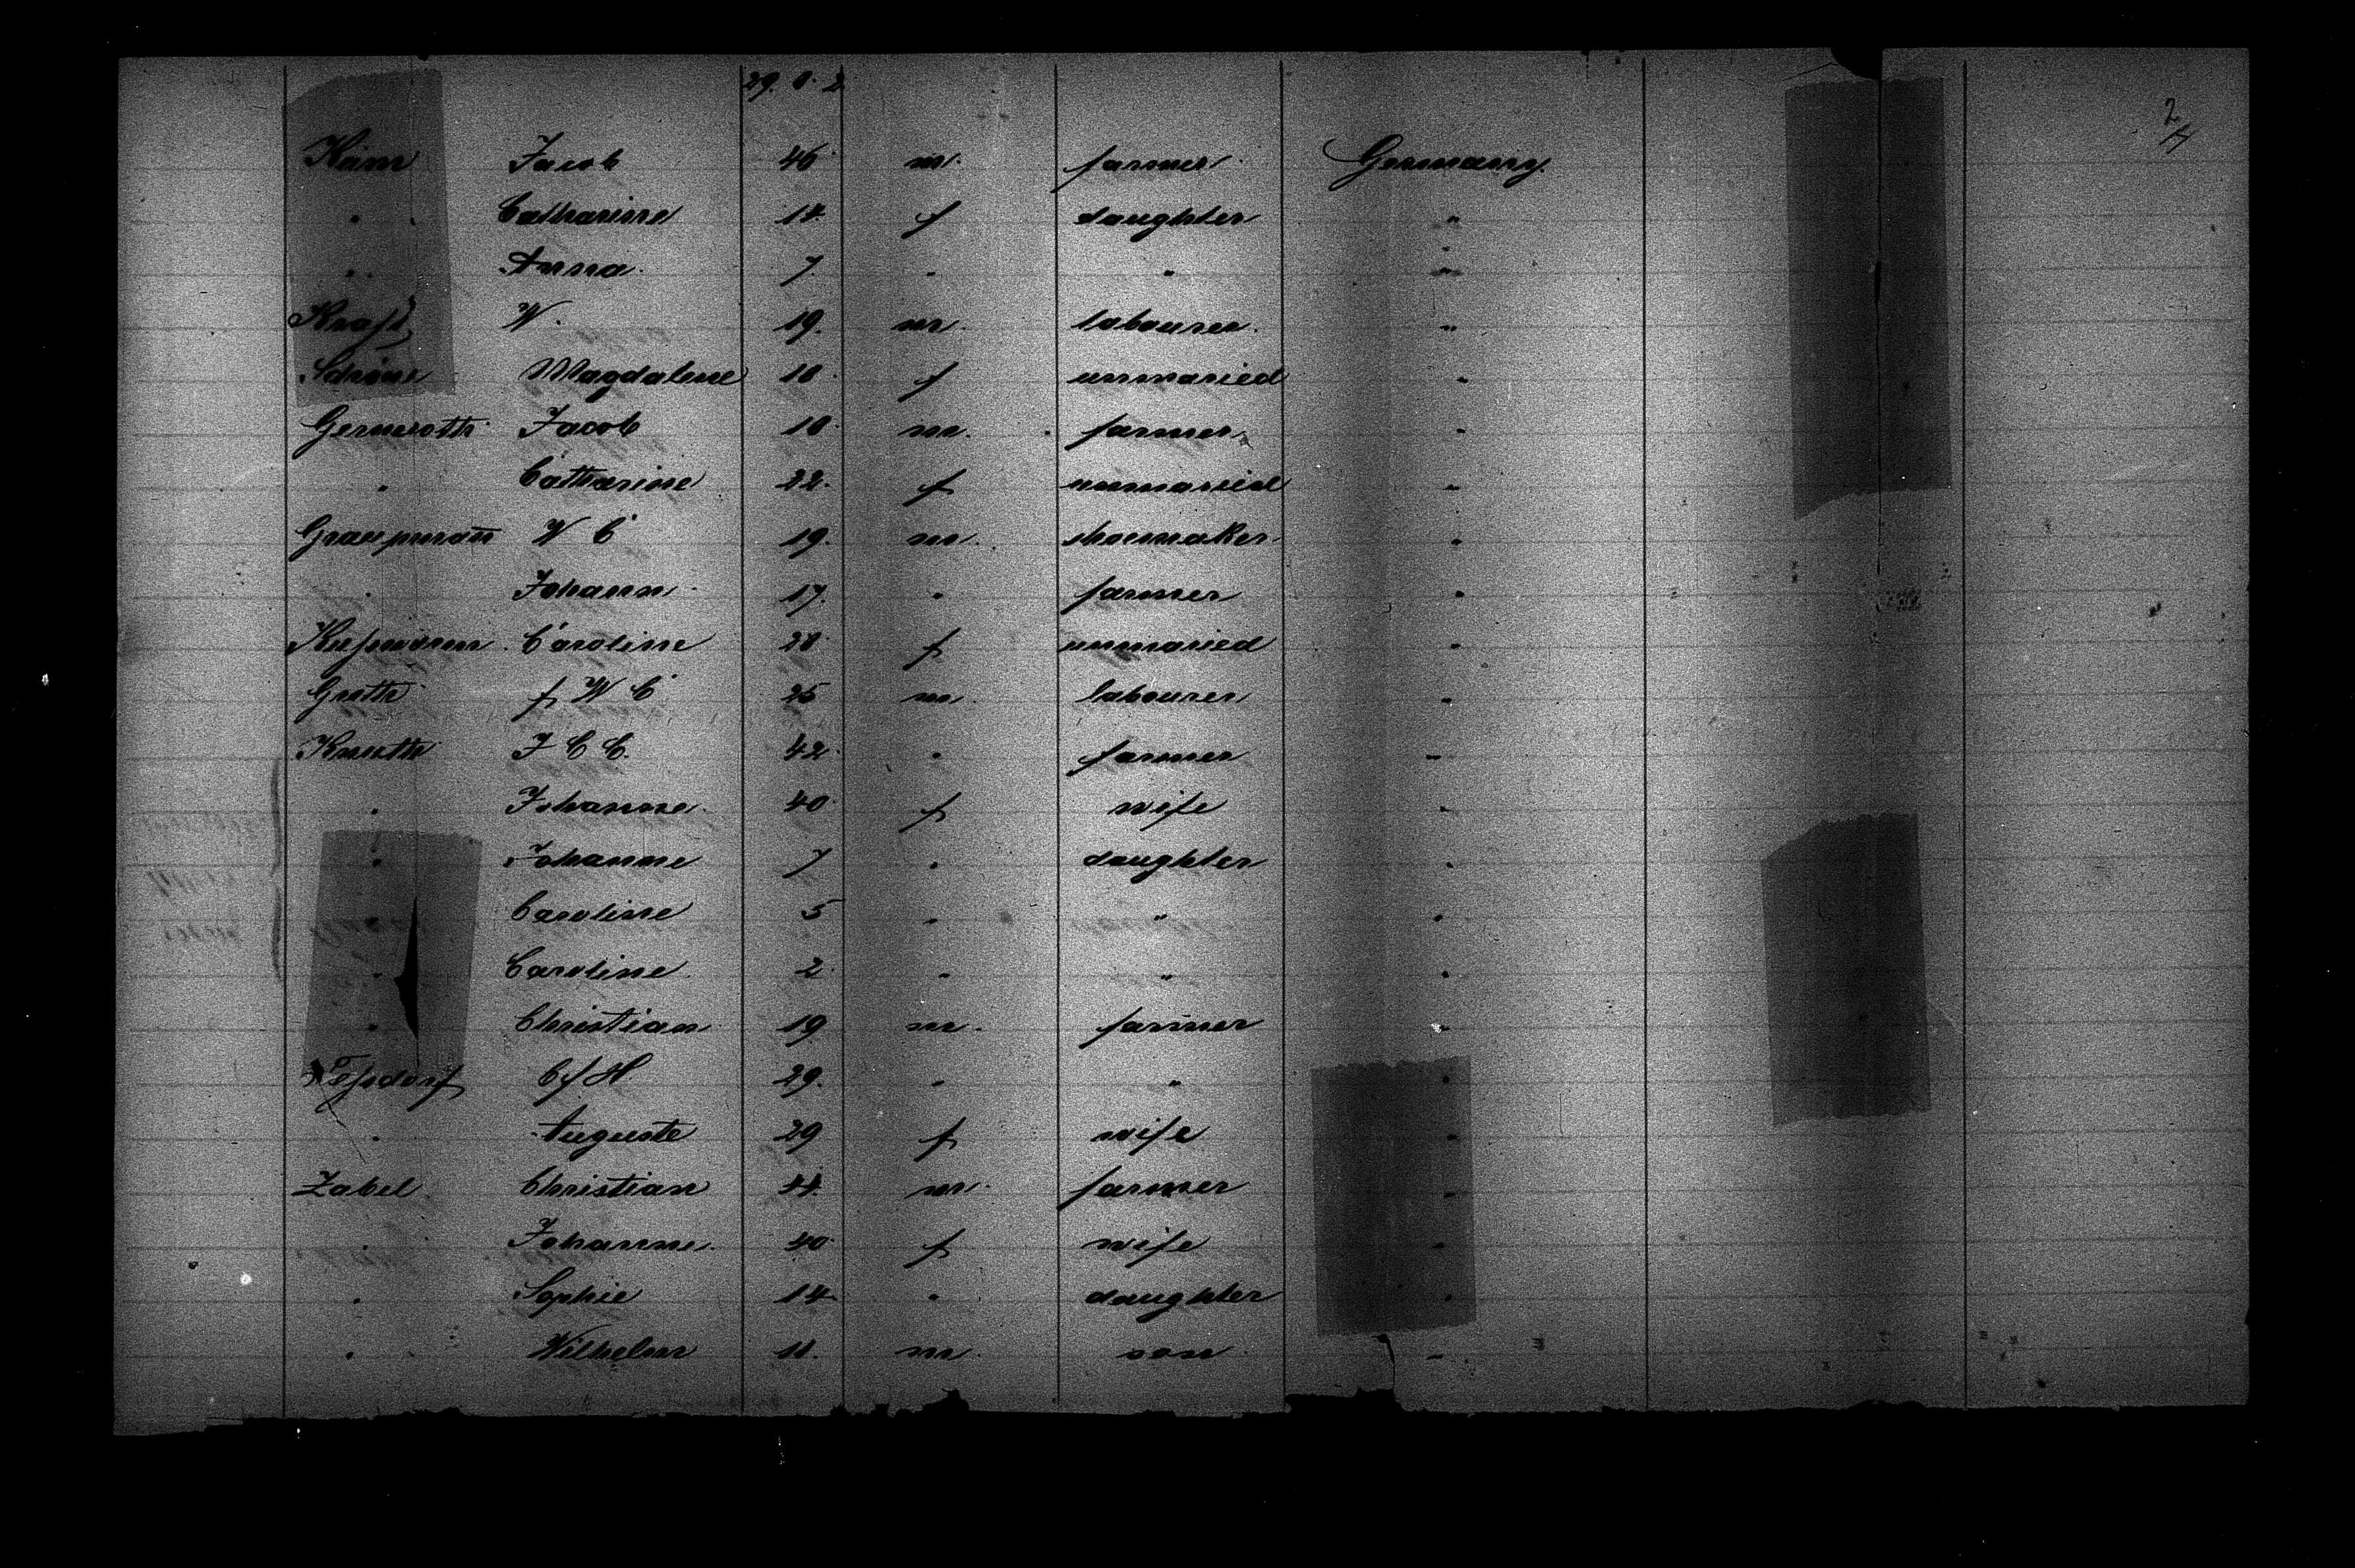 29. 8. 2
2
Kam Jacob 46 m. farmer Germany.
" Catharine 14 f daughter "
" Anna 7 " " "
Kraft W. 19. m. labourer "
Schöne Magdalene 18 f unmaried "
Gernroth Jacob 18 m. farmer "
" Catharine 22. f unmaried "
Graupmañ W C 19. m. shoemaker "
" Johann 17. " farmer "
Caroline 28 f unmaried "
Groth f W C 25 m labourer "
Knuth J C C. 42 " farmer "
" Johanne 40 f wife "
" Johanne 7 " daughter "
" Caroline 5 " " "
" Caroline 2 " " "
" Christian 19 m. farmer "
Teſsdorf C f H. 29. " " "
" Auguste 29 f wife "
Zabel Christian 44. m. farmer "
" Johanne. 40 f wife "
" Sophie 14 " daughter "
" Wilhelm 11. m son "